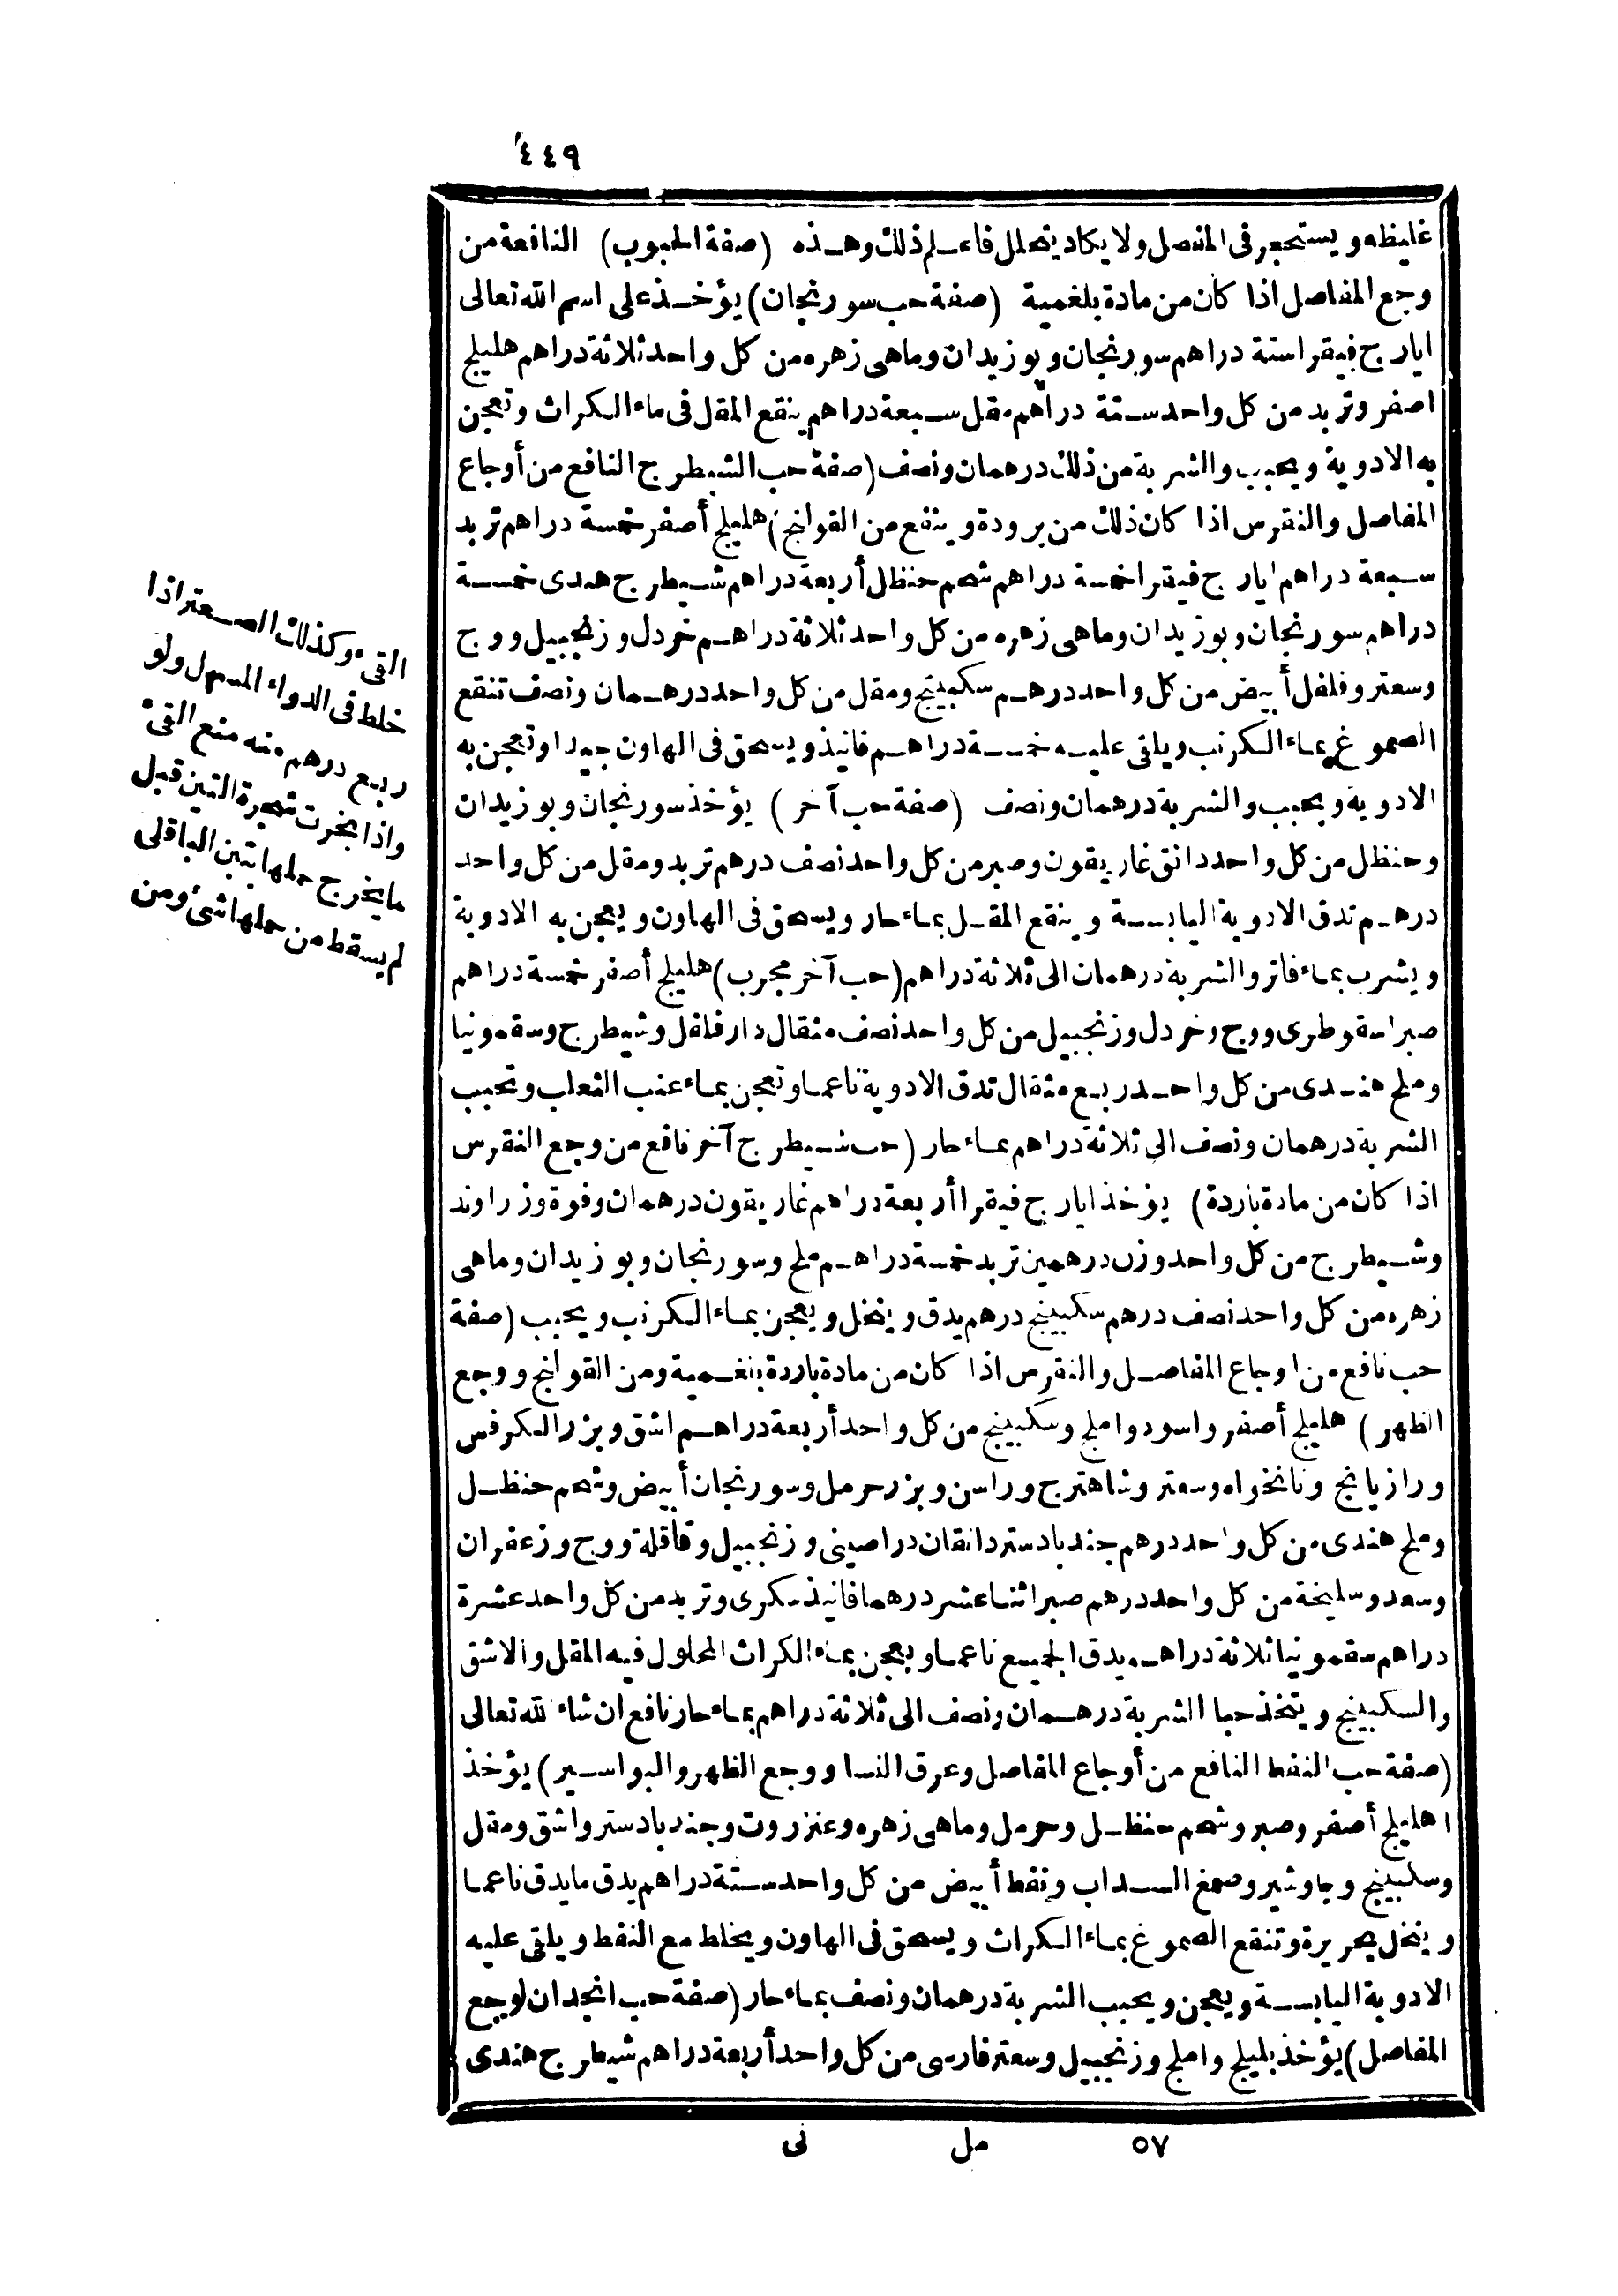 ٤٤٩
غليظه ويستحجر فى المفصل ولا يكاد يتحلل فاعلم ذلك وهذه (صفة الحبوب) النافعة من
وجع المفاصل اذا كان من مادة بلغمية (صفة حب سورنجان) يؤخذ على اسم الله تعالى
ايارج فيقرا ستة دراهم سورنجان وبوزيدان وماهى زهره من كل واحد ثلاثة دراهم هليلج
اصفر وتربد من كل واحد ستة دراهم مقل سبعة دراهم ينقع المقل فى ماء الكراث وتعجن
به الادوية ويحبب والشربة من ذلك درهمان ونصف (صفة حب الشيطرج النافع من أوجاع
المفاصل والنقرس اذا كان ذلك من برودة وينفع من القولنج) هليلج أصفر خمسة دراهم تربد
سبعة دراهم ايارج فيقرا خمسة دراهم شحم حنظل أربعة دراهم شيطرج هندى خمسة
دراهم سورنجان وبوزيدان وماهى زهره من كل واحد ثلاثة دراهم خردل وزنجبيل ووج
وسعتر وفلفل أبيض من كل واحد درهم سكبينج ومقل من كل واحد درهمان ونصف تنقع
الصموغ بماء الكرنب ويلقى عليه خمسة دراهم فانيذ ويسحق فى الهاون جيدا وتعجن به
الادوية ويحبب والشربة درهمان ونصف (صفة حب آخر) يؤخذ سورنجان وبوزيدان
وحنظل من كل واحد دانق غاريقون وصبر من كل واحد نصف درهم تربد ومقل من كل واحد
درهم تدق الادوية اليابسة وينقع المقل بماء حار ويسحق فى الهاون ويعجن به الادوية
ويشرب بماء فاتر والشربة درهمان الى ثلاثة دراهم (حب آخر مجرب) هليلج أصفر خمسة دراهم
صبر اسقوطرى ووج وخردل وزنجبيل من كل واحد نصف مثقال دار فلفل وشيطرج وسقمونيا
وملح هندى من كل واحد ربع مثقال تدق الادوية ناعما وتعجن بماء عنب الثعلب وتحبب
الشربة درهمان ونصف الى ثلاثة دراهم بماء حار (حب شيطرج آخر نافع من وجع النقرس
اذا كان من مادة باردة) يؤخذ ايارج فيقرا أربعة دراهم غاريقون درهمان وفوة وزراوند
وشيطرج من كل واحد وزن درهمين تربد خمسة دراهم ملح وسورنجان وبوزيدان وماهى
زهره من كل واحد نصف درهم سكبينج درهم يدق وينخل ويعجن بماء الكرنب ويحبب (صفة
حب نافع من اوجاع المفاصل والنقرس اذا كان من مادة باردة بلغمية ومن القولنج ووجع
الظهر) هليلج أصفر واسود واملج وسكبينج من كل واحد أربعة دراهم اشق وبزر الكرفس
ورازيانج ونانخواه وسعتر وشاهترج وراسن وبزر حرمل وسورنجان أبيض وشحم حنظل
وملح هندى من كل واحد درهم جندبادستر دانقان دراصينى وزنجبيل وقاقلة ووج وزعفران
وسعد وسليخة من كل واحد درهم صبر اثنا عشر درهما فانيذ سكرى وتربد من كل واحد عشرة
دراهم سقمونيا ثلاثة دراهم يدق الجميع ناعما ويعجن بماء الكراث المحلول فيه المقل والاشق
والسكبينج ويتخذ حبا الشربة درهمان ونصف الى ثلاثة دراهم بماء حار نافع ان شاء لله تعالى
(صفة حب النفط النافع من أوجاع المفاصل وعرق النسا ووجع الظهر والبواسير) يؤخذ
اهليلج أصفر وصبر وشحم حنظل وحرمل وماهى زهره وعنزروت وجندبادستر واشق ومقل
وسكبينج وجاوشير وصمغ السداب ونفط أبيض من كل واحد ستة دراهم يدق ما يدق ناعما
وينخل بحريرة وتنقع الصموغ بماء الكراث ويسحق فى الهاون ويخلط مع النفط ويلقى عليه
الادوية اليابسة ويعجن ويحبب الشربة درهمان ونصف بماء حار (صفة حب انجدان لوجع
المفاصل) يؤخذ بليلج واملج وزنجبيل وسعتر فارسى من كل واحد أربعة دراهم شيطرج هندى
القىء وكذلك الصعتر اذا
خلط فى الدواء المسهل ولو
ربع درهم منه منع القىء
واذا بخرت شجرة التين قبل
ما يخرج حملها بتبن الباقلى
لم يسقط من حملها شئ ومن
٥٧ مل نى